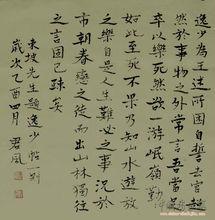 逸少為王述所困自誓去官超
然於事物之外常言吾當
卒以樂死然欲一遊岷嶺勤
勤如此而至死不果乃知山水遊放
之樂自是人生難必之事況於
市朝眷戀之徒而出山林獨往
之言固已疎矣
東坡先生題逸少帖一則
歲次乙酉四月